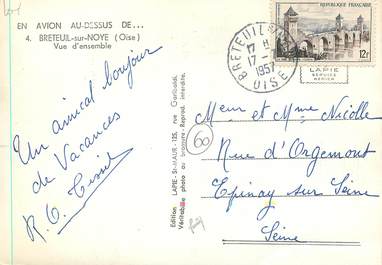 EN AVION AU-DESSUS DE...
4. BRETEUIL-sur-NOYE (Oise)
Vue d'ensemble
Un amical bonjour
de Vacances
R. G.
Edition LAPIE - St-MAUR - 125, rue Garibaldi.
Véritable photo au bromure - Reprod. interdite.
BRETEUIL
17 H
17 -
1957
OISE
REPUBLIQUE FRANÇAISE
12F
LAPIE
SERVICE
AERIEN
60
Meur et Mme Nicolle
Rue d'Orgemont
Epinay sur Seine
Seine